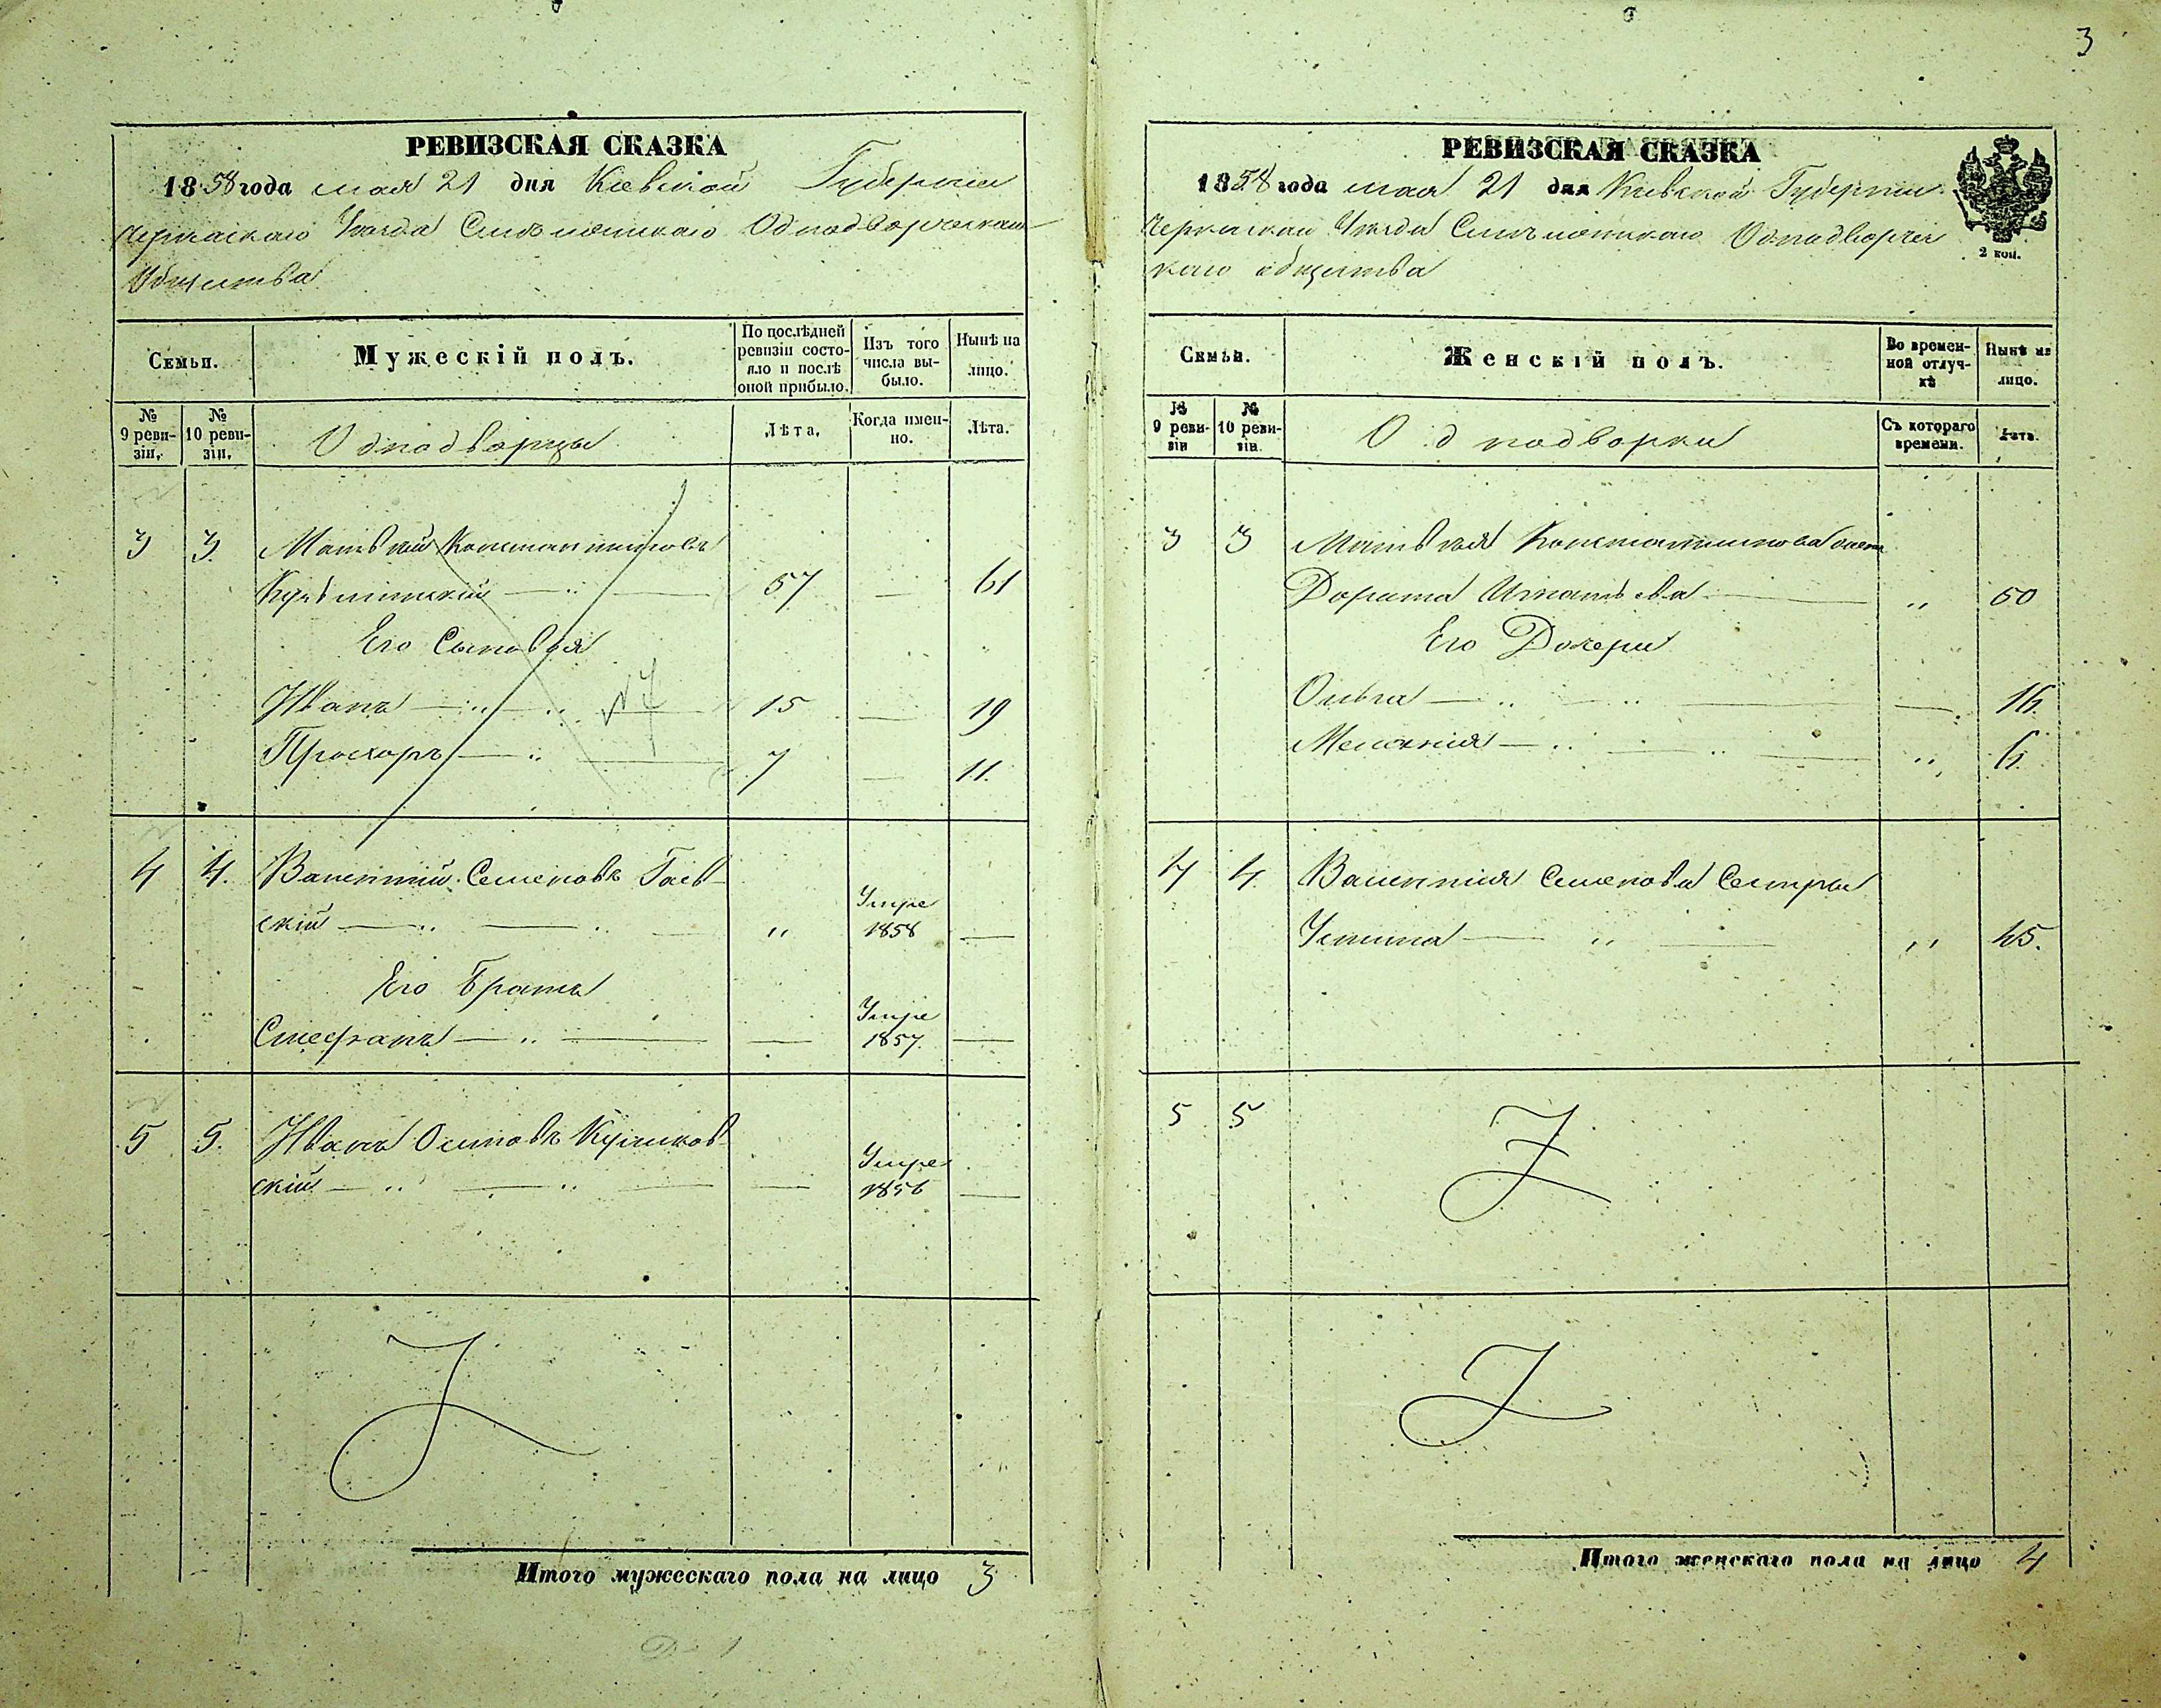 3
РЕВИЗСКАЯ СКАЗКА
1858 года мая 21 дня Киевской Губернии
Черкаскаго Уѣзда Смѣлянскаго Однодворческаго
Общества
Семьи.
Мужескій полъ.
По послѣдней ревизіи состояло и послѣ оной прибыло.
Изъ того числа выбыло.
Нынѣ на лицо.
№ 9 ревизіи.
№ 10 ревизіи.
Однодворцы
Лѣта.
Когда именно.
Лѣта.
3 3. Матвѣй Константиновъ
57 — 61
Его Сыновья
Иванъ — 15 — 19
№ 4
Прохоръ — 7 — 11.
4 4. Валентій Семеновъ Гаев-
скій — " Умре 1858 —
Его Братъ
Стефанъ — — Умре 1857. —
5 5. Иванъ Осиповъ
скій — — Умре 1856 —
Итого мужескаго пола на лицо 3
РЕВИЗСКАЯ СКАЗКА
1858 года мая 21 дня Киевской Губернии
Черкаскаго Уѣзда Смѣлянскаго Однодворчес
каго общества
2 коп.
Семьи.
Женскій полъ.
Во временной отлучкѣ
Нынѣ на лицо.
№ 9 ревизіи
№ 10 ревизіи.
Однодворки
Съ котораго времени.
Лѣта.
3 3 Матвѣя Константинова жена
Дорота Игнатьева — " 50
Его Дочери
Ольга — — 16.
Мелания — " 6.
4 4. Валентія Семенова Сестра
Устина — " 45.
5 5
Итого женскаго пола на лицо 4